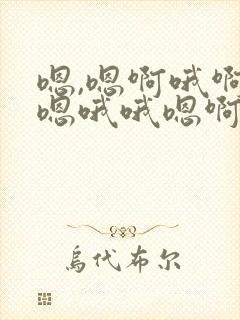 嗯,嗯啊哦啊
嗯哦哦嗯啊
乌代布尔